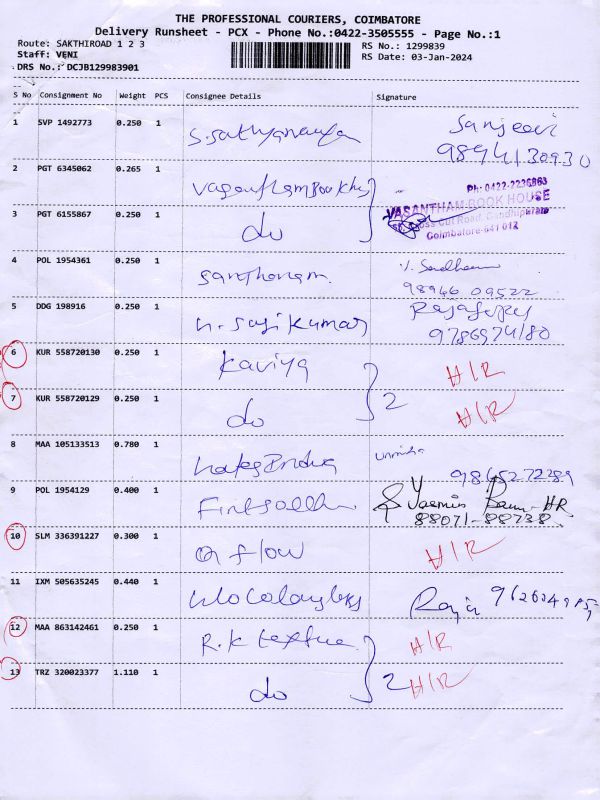 THE PROFESSIONAL COURIERS, COIMBATORE
Delivery Runsheet - PCX - Phone No.:0422-3505555 - Page No.:1
Route: SAKTHIROAD 1 2 3
Staff: VENI
DRS No.: DCJB129983901
RS No.: 1299839
RS Date: 03-Jan-2024
S No Consignment No Weight PCS Consignee Details Signature
1 SVP 1492773 0.250 1 Sanjeevi
9894130930
2 PGT 6345062 0.265 1 Ph: 0422-2236863
VASANTHAM BOOK HOUSE
3 PGT 6155867 0.250 1 do Cross Cut Road, Gandhipuram
Coimbatore-641 012
4 POL 1954361 0.250 1 Santhanam
98946 09522
5 DDG 198916 0.250 1 n. Sasikumar
9786974180
6 KUR 558720130 0.250 1 Kaviya H/R
7 KUR 558720129 0.250 1 do 2 H/R
8 MAA 105133513 0.780 1
9865272289
9 POL 1954129 0.400 1 Yasmin Banu-HR
88071-88738
10 SLM 336391227 0.300 1 Q flow H/R
11 IXM 505635245 0.440 1 Raja
12 MAA 863142461 0.250 1 R.K textue H/R
13 TRZ 320023377 1.110 1 do 2 H/R